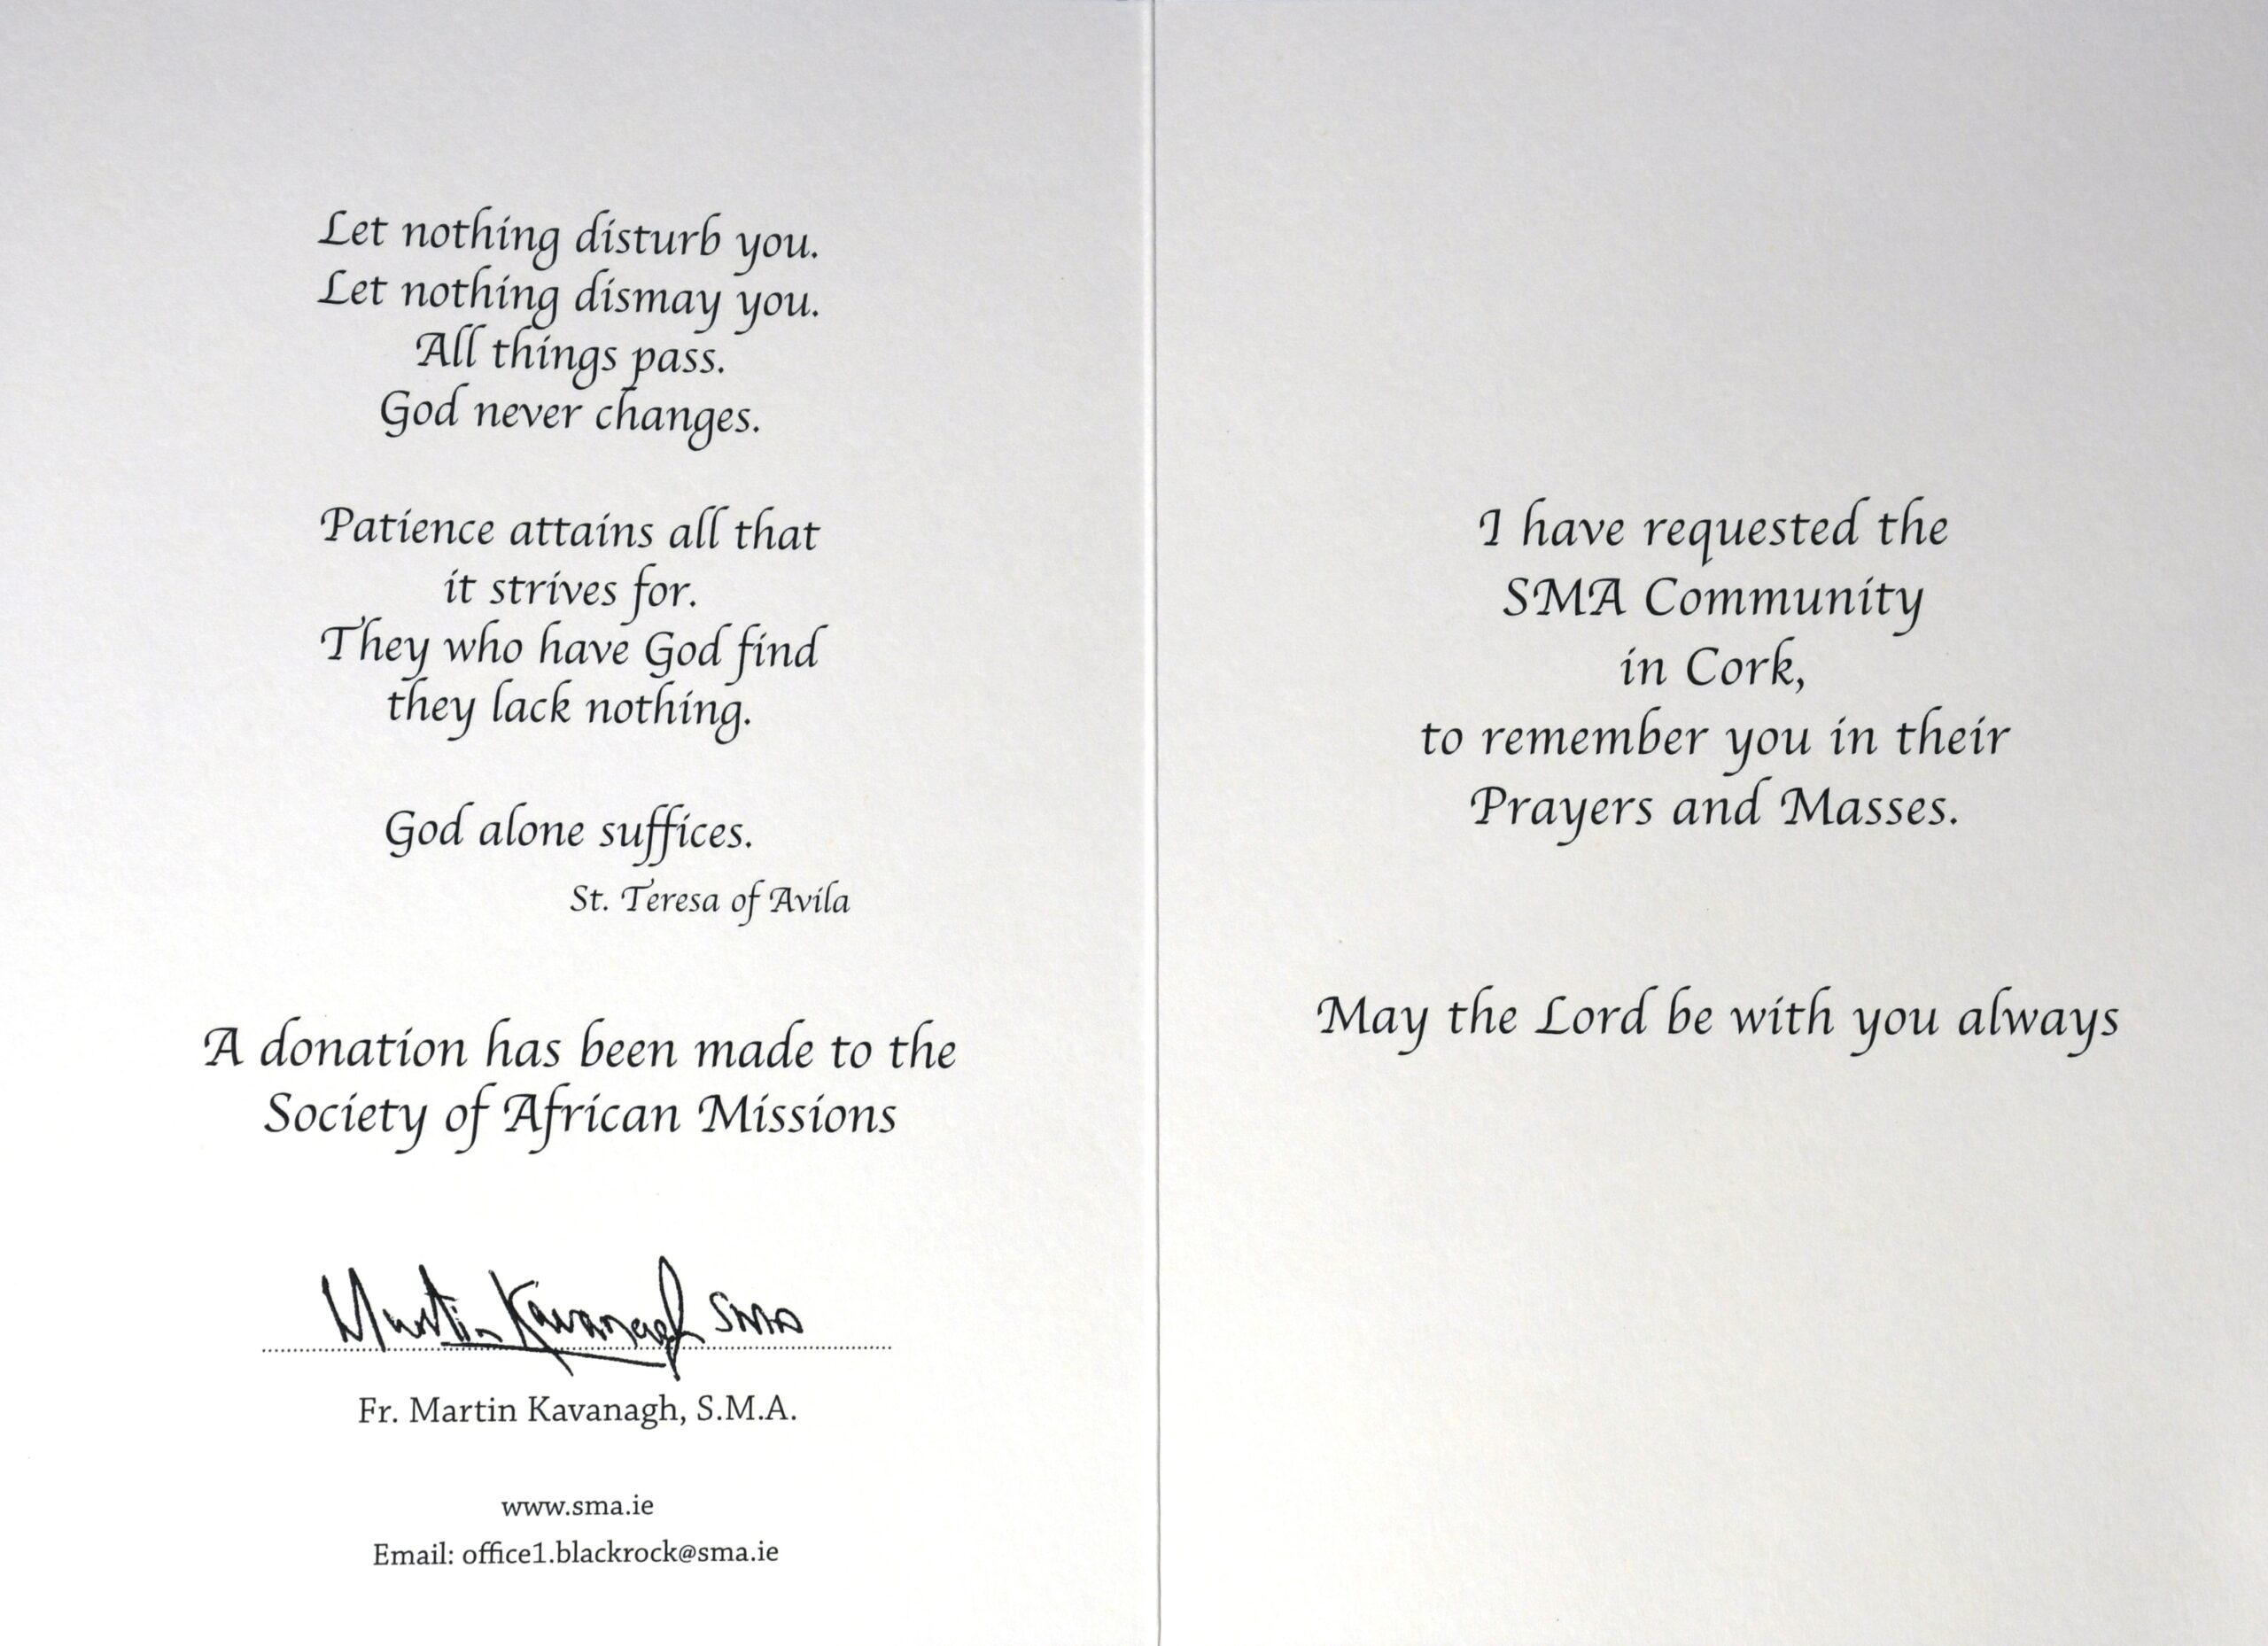 Let nothing disturb you.
Let nothing dismay you.
All things pass.
God never changes.
Patience attains all that
it strives for.
They who have God find
they lack nothing.
God alone suffices.
St. Teresa of Avila
A donation has been made to the
Society of African Missions
Martin Kavanagh SMA
Fr. Martin Kavanagh, S.M.A.
www.sma.ie
Email: office1.blackrock@sma.ie
I have requested the
SMA Community
in Cork,
to remember you in their
Prayers and Masses.
May the Lord be with you always